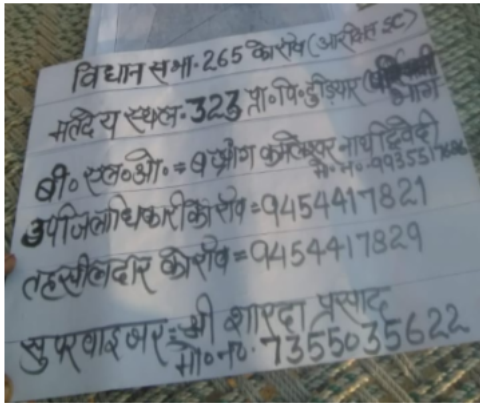 विधान सभा-265 कोरांव (आरक्षित SC)
मतदेय स्थल-323 प्रा०वि०डुडियार (
भाग
बी० एल०ओ० = कमलेश्वर नाथ द्विवेदी
मो० न०-
उपजिलाधिकारी कोरांव=9454417821
तहसीलदार कोरांव=9454417829
सुपरवाइजर=श्री शारदा प्रसाद
मो०न०-7355035622